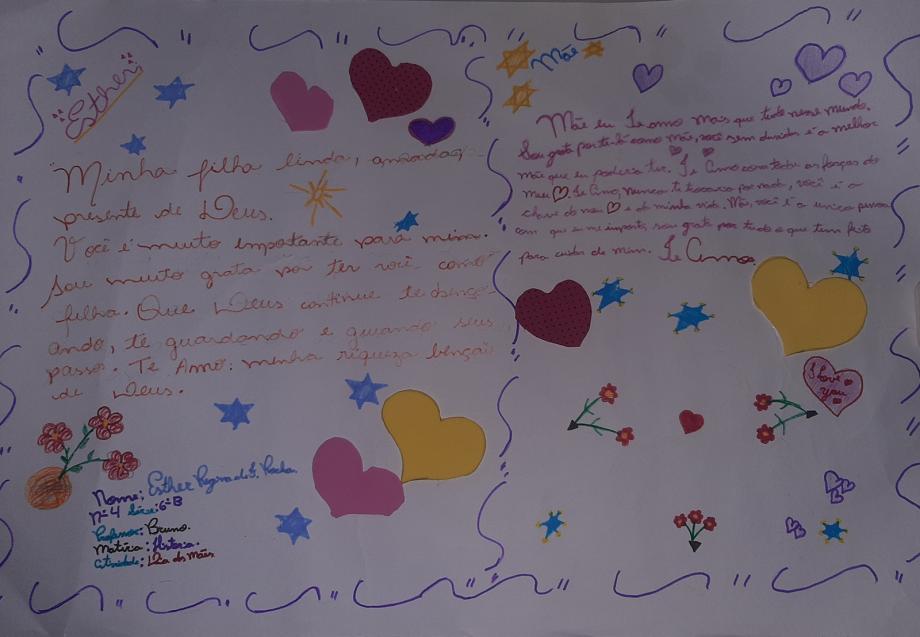 Esther
Minha filha linda, amada,
presente de Deus.
Você é muito importante para mim.
Sou muito grata por ter você como
filha. Que Deus continue te abenço-
ando, te guardando e guiando seus
passos. Te Amo: minha riqueza bençaõ
de Deus.
Nome: Esther Regina de S. Rocha
Nº 4 Série: 6º B
Professor: Bruno.
Matéria: História.
Atividade: Dia das Mães
Mãe
Mãe eu Te amo mais que tudo nesse mundo.
Sou grata por te tê como Mãe, você sem duvida é a melhor
mãe que eu poderia ter. Te Amo com todas as forças do
meu Te Amo, Nunca te trocaria por nada, você é a
chave do meu e da minha vida. Mãe, você é a unica pessoa
com que eu me importo, sou grata por tudo o que tem feito
para cuidar de mim. Te Amo.
I love
you